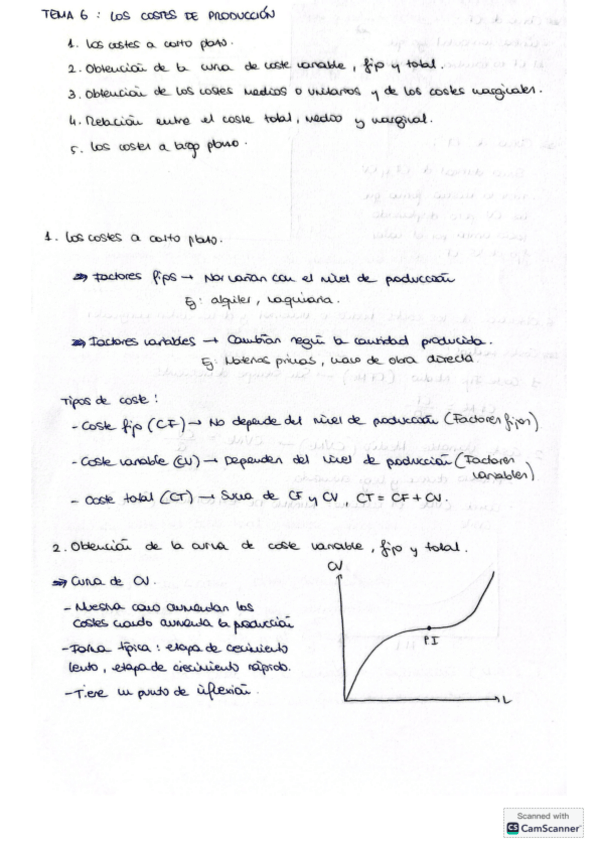 TEMA 6 : LOS COSTES DE PRODUCCIÓN
1. Los costes a corto plazo.
2. Obtención de la curva de coste variable, fijo y total.
3. Obtención de los costes medios o unitarios y de los costes marginales.
4. Relación entre el coste total, medio y marginal.
5. Los costes a largo plazo.
1. Los costes a corto plazo.
⇒ Factores fijos → No varían con el nivel de producción
Ej: alquiler, maquinaria.
⇒ Factores variables → Cambian según la cantidad producida.
Ej: Materias primas, mano de obra directa.
Tipos de coste :
- Coste fijo (CF) → No depende del nivel de producción (Factores fijos)
- Coste variable (CV) → Dependen del nivel de producción (Factores
variables)
- Coste total (CT) → Suma de CF y CV, CT = CF + CV.
2. Obtención de la curva de coste variable, fijo y total.
⇒ Curva de CV.
- Muestra como aumentan los
costes cuando aumenta la producción
- Forma típica : etapa de crecimiento
lento, etapa de crecimiento rápido.
- Tiene un punto de inflexión.
CV
PI
L
Scanned with
CS CamScanner